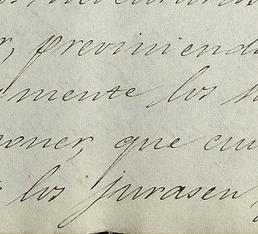 , previniend
mente los
poner, que cu
los jurasen